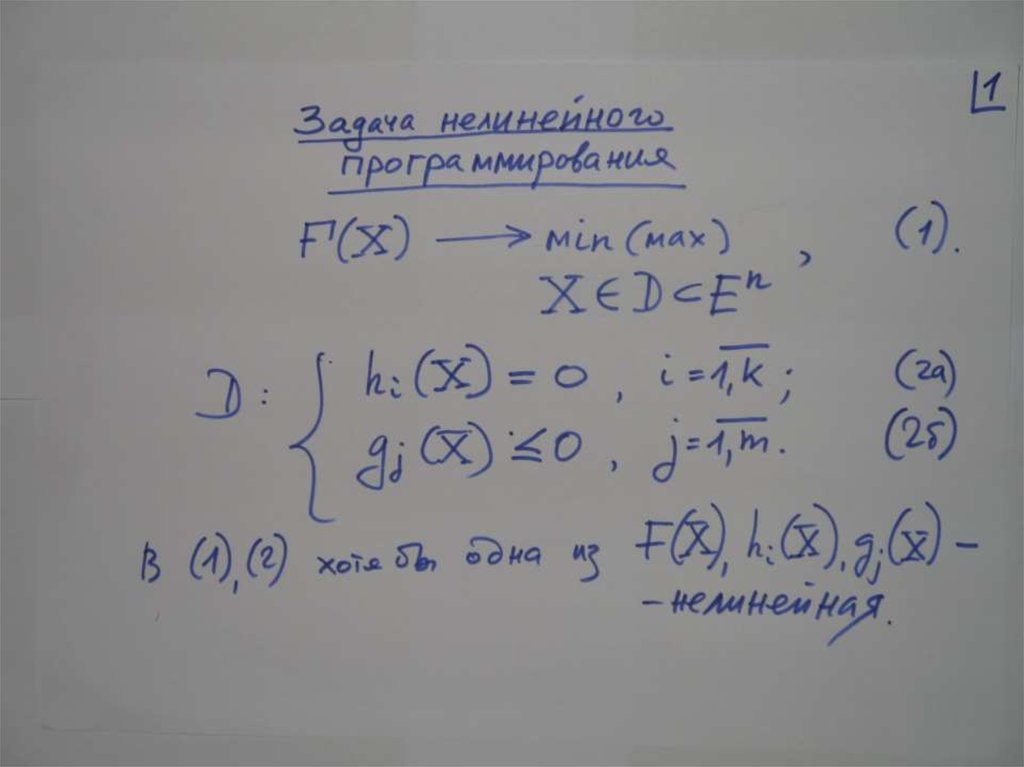 1
Задача нелинейного
программирования
F(X) → min (max) , (1).
X ∈ D ⊂ Eⁿ
D : { hᵢ(X) = 0 , i = 1,k ; (2а)
gⱼ(X) ≤ 0 , j = 1,m . (2б)
В (1),(2) хотя бы одна из F(X), hᵢ(X), gⱼ(X) –
– нелинейная.